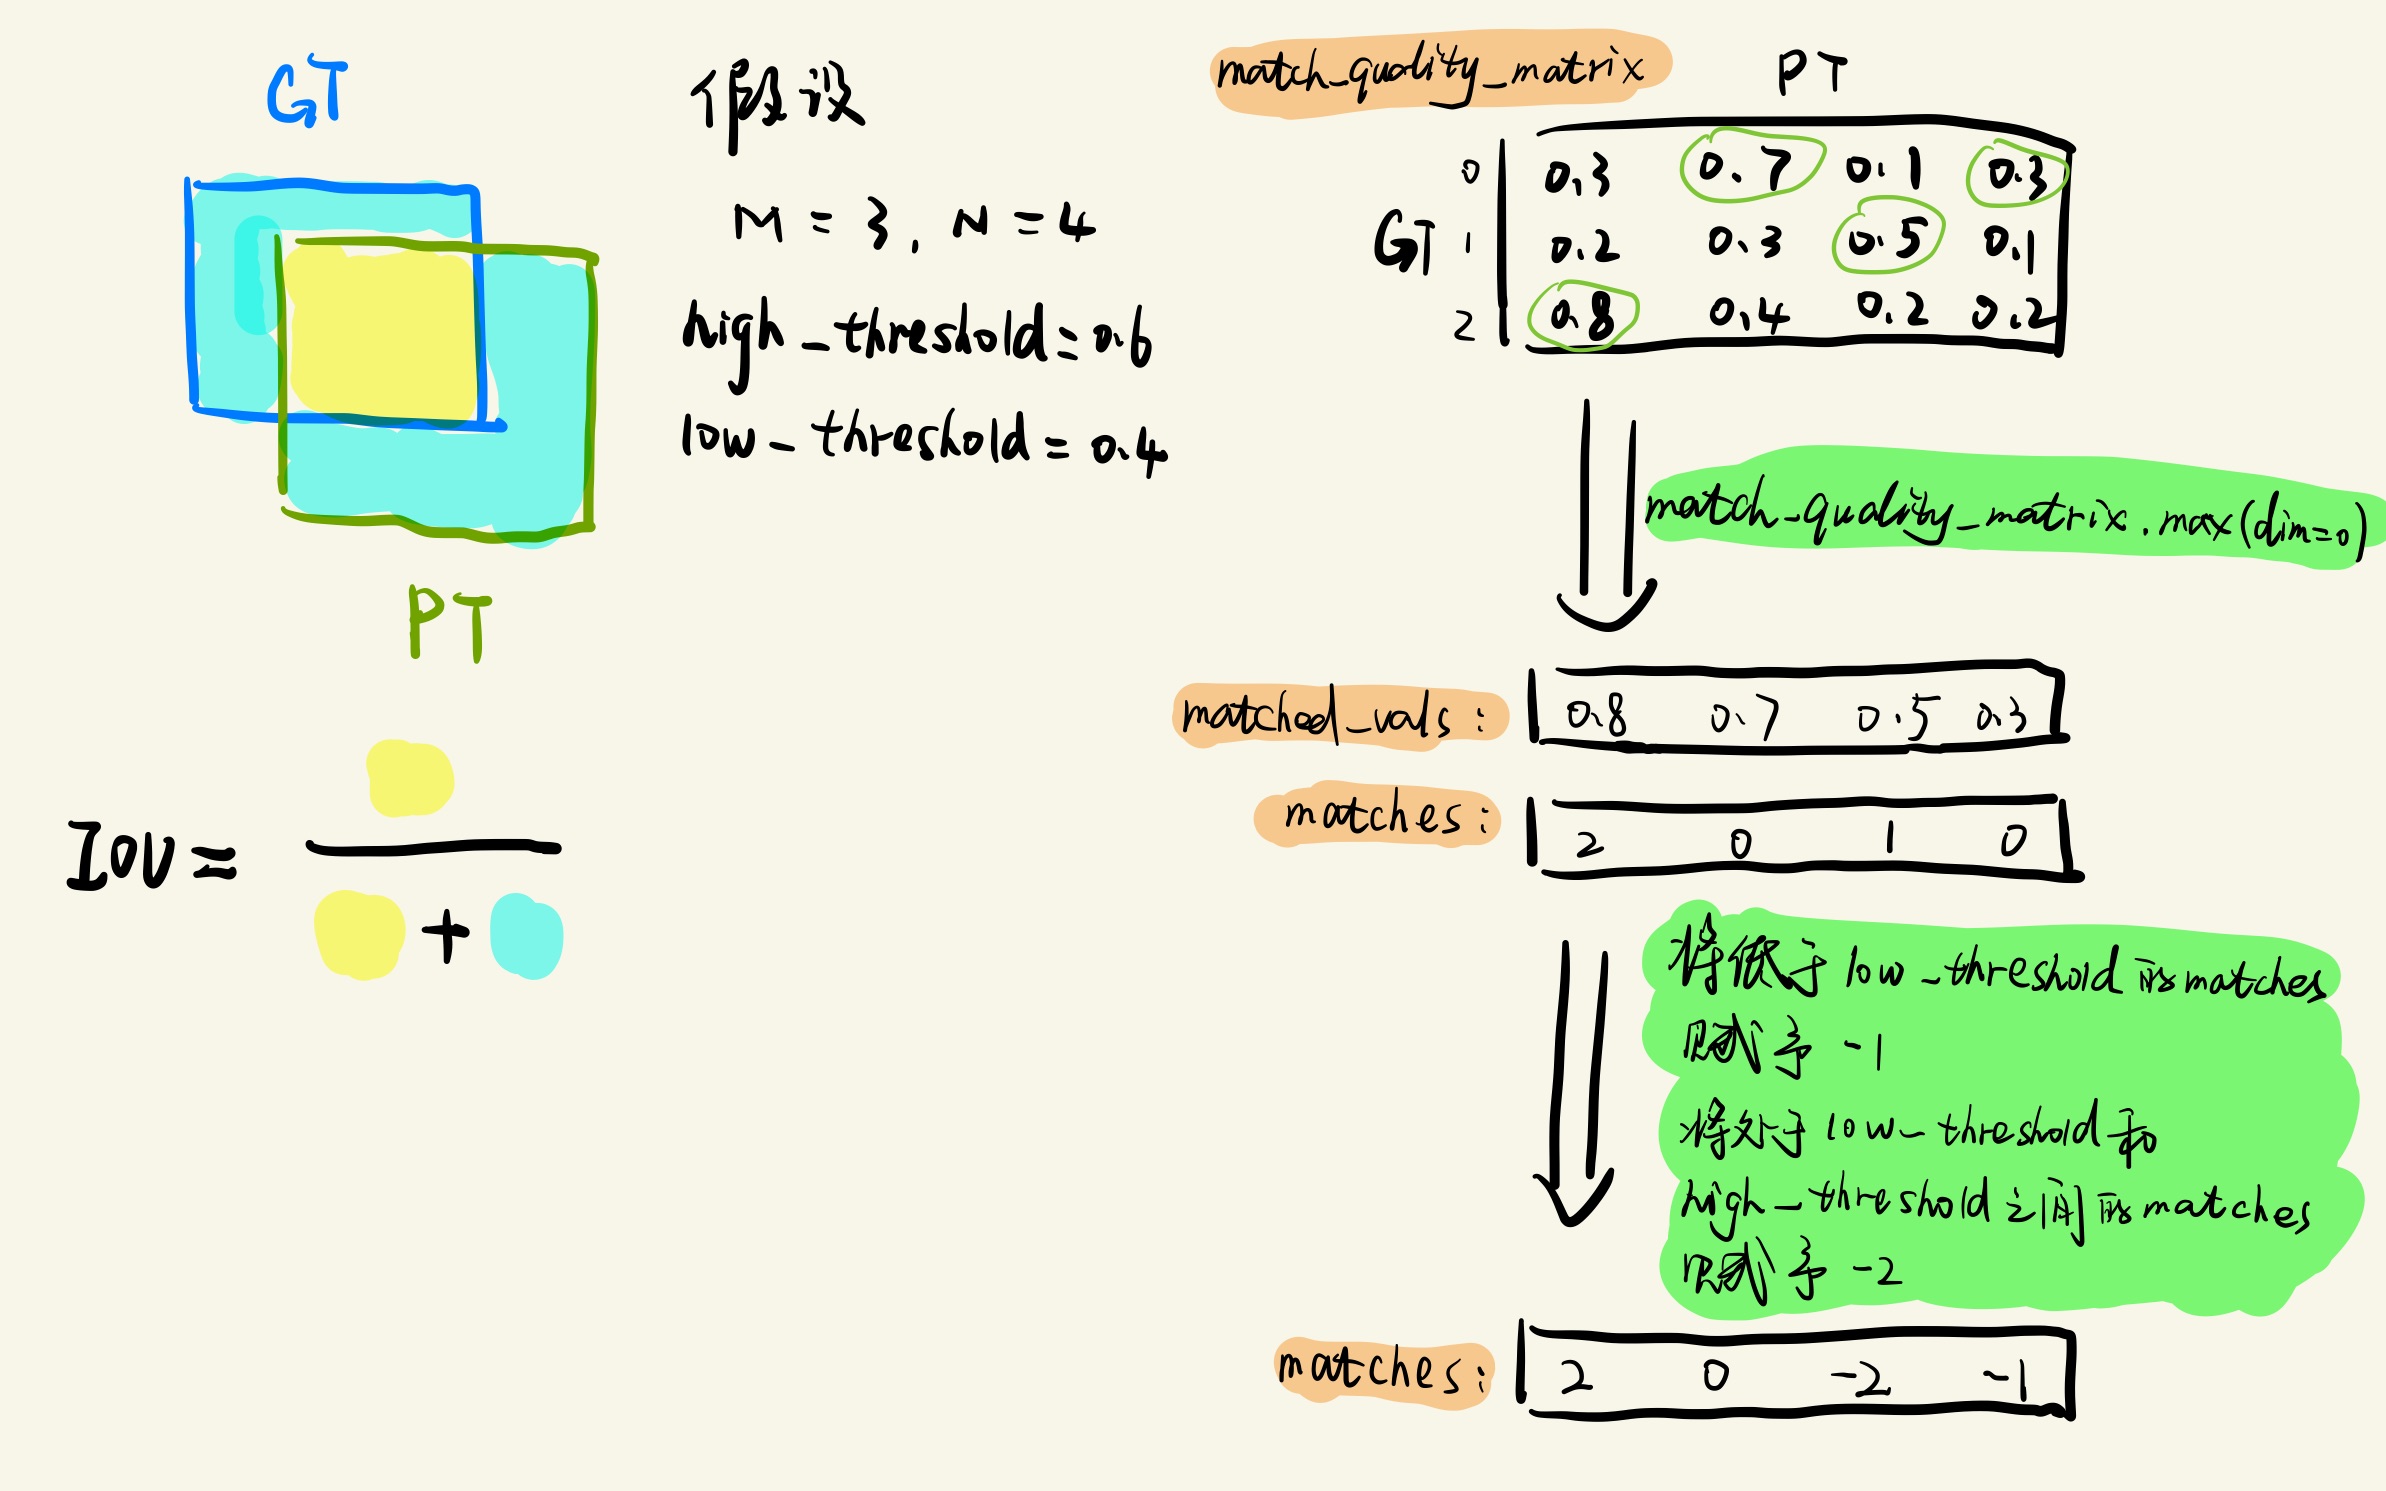 GT
PT
IOU =
+
假设
M = 3, N = 4
high_threshold = 0.6
low_threshold = 0.4
match_quality_matrix
PT
GT
0 0.3 0.7 0.1 0.3
1 0.2 0.3 0.5 0.1
2 0.8 0.4 0.2 0.2
match_quality_matrix.max(dim=0)
matched_vals: 0.8 0.7 0.5 0.3
matches: 2 0 1 0
将低于low_threshold的matches
赋予 -1
将处于low_threshold和
high_threshold之间的matches
赋予 -2
matches: 2 0 -2 -1